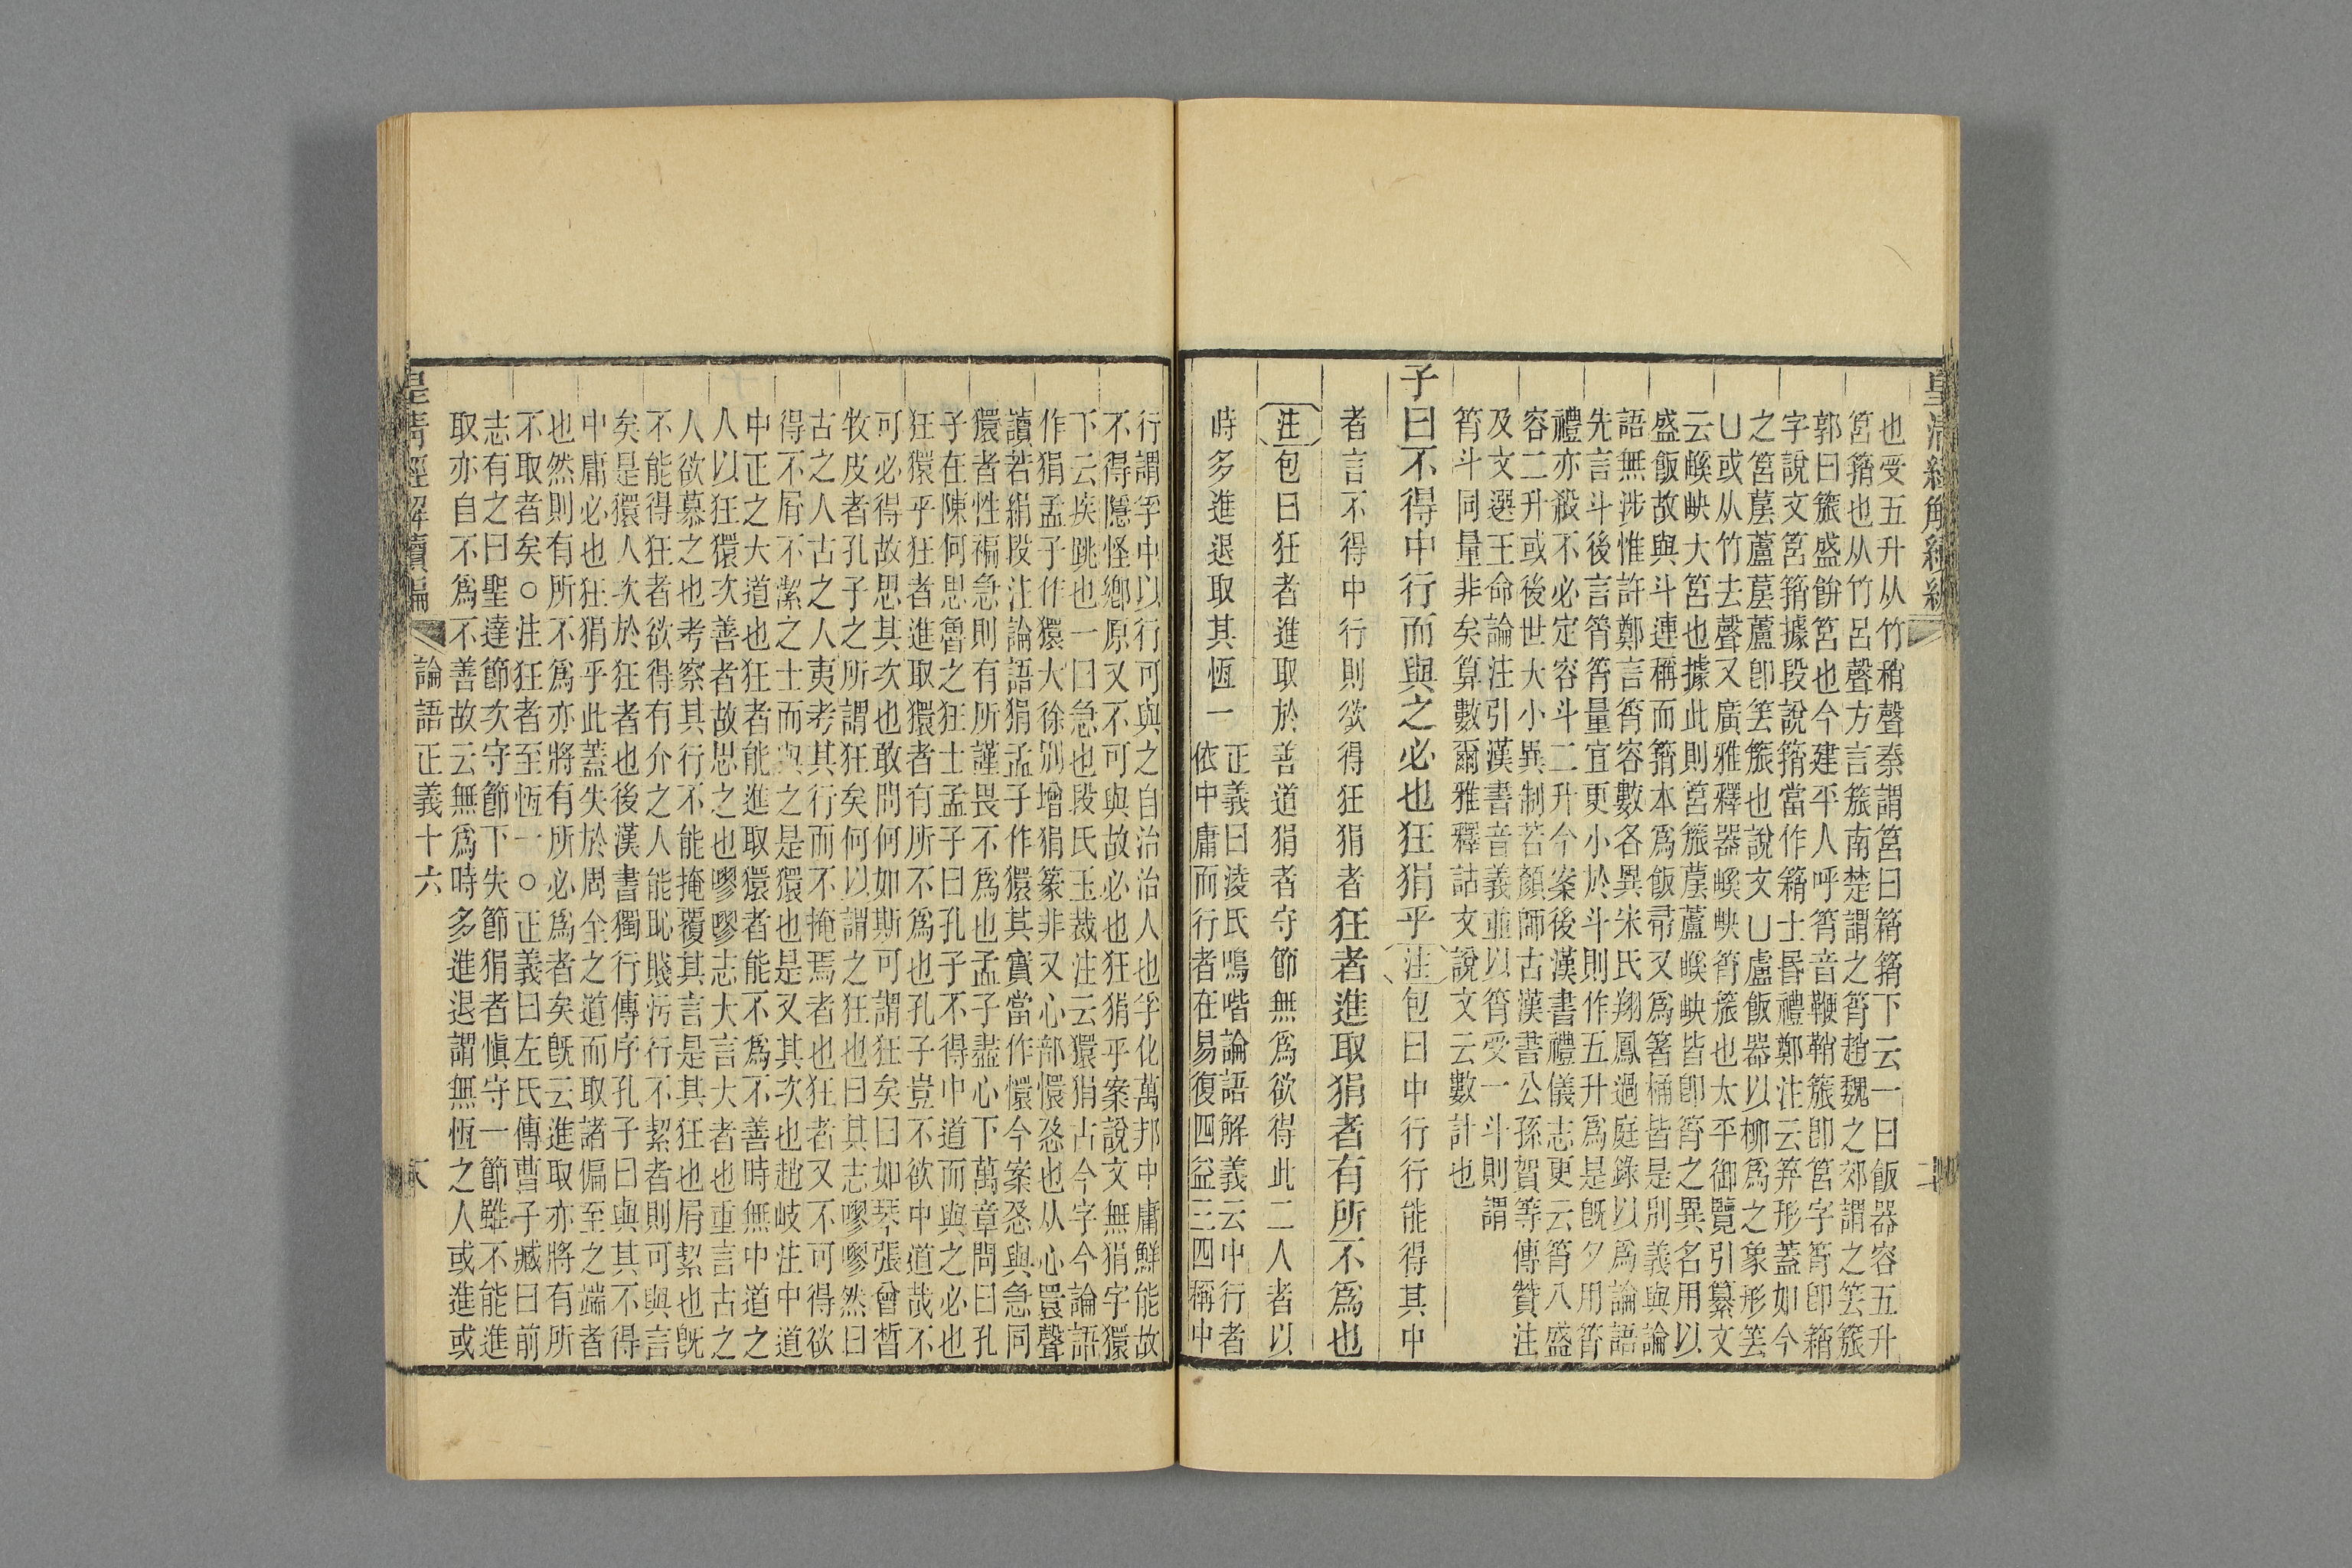 皇清經解續編
也受五升从竹稍聲秦謂筥曰䈰䈰下云一曰飯器容五升
筥䈰也从竹呂聲方言簇南楚謂之筲趙魏之郊謂之𥬔簇
郭曰簇盛餅筥也今建平人呼筲音鞭鞘簇卽筥字筲卽䈰
字說文筥䈰據段說䈰當作䈰士昬禮鄭注云笲形蓋如今
之筥𥳊蘆𥳊蘆卽𥬔簇也說文𠙴盧飯器以柳爲之象形𥬔
𠙴或从竹去聲又廣雅釋器㟅㟎筲簇也太平御覽引纂文
云㟅㟎大筥也據此則筥簇𥳊蘆㟅㟎皆卽筲之異名用以
盛飯故與斗連稱而䈰本爲飯帚又爲箸桶皆是別義與論
語無涉惟許鄭言筲容數各異宋氏翔鳳過庭錄以爲論語
先言斗後言筲筲量宜更小於斗則作五升爲是旣夕用筲
禮亦殺不必定容斗二升今案後漢書禮儀志更云筲八盛
容二升或後世大小異制若顏師古漢書公孫賀等傳贊注
及文選王命論注引漢書音義並以筲受一斗則謂
筲斗同量非矣算數爾雅釋詁文說文云數計也
子曰不得中行而與之必也狂狷乎注包曰中行行能得其中
者言不得中行則欲得狂狷者狂者進取狷者有所不爲也
注包曰狂者進取於善道狷者守節無爲欲得此二人者以
時多進退取其恆一
正義曰淩氏鳴喈論語解義云中行者
依中庸而行者在易復四益三四稱中
行謂孚中以行可與之自治治人也孚化萬邦中庸鮮能故
不得隱怪鄉原又不可與故必也狂狷乎案說文無狷字獧
下云疾跳也一曰急也段氏玉裁注云獧狷古今字今論語
作狷孟子作獧大徐別增狷篆非又心部懁急也从心瞏聲
讀若絹段注論語狷孟子作獧其實當作懁今案懁與急同
獧者性褊急則有所謹畏不爲也孟子盡心下萬章問曰孔
子在陳何思魯之狂士孟子曰孔子不得中道而與之必也
狂獧乎狂者進取獧者有所不爲也孔子豈不欲中道哉不
可必得故思其次也敢問何如斯可謂狂矣曰如琴張曾晳
牧皮者孔子之所謂狂矣何以謂之狂也曰其志嘐嘐然曰
古之人古之人夷考其行而不掩焉者也狂者又不可得欲
得不屑不潔之士而與之是獧也是又其次也趙岐注中道
中正之大道也狂者能進取獧者能不爲不善時無中道之
人以狂獧次善者故思之也嘐嘐志大言大者也重言古之
人欲慕之也考察其行不能掩覆其言是其狂也屑絜也旣
不能得狂者欲得有介之人能恥賤污行不絜者則可與言
矣是獧人次於狂者也後漢書獨行傳序孔子曰與其不得
中庸必也狂狷乎此蓋失於周全之道而取諸偏至之端者
也然則有所不爲亦將有所必爲者矣旣云進取亦將有所
不取者矣○注狂者至恆一○正義曰左氏傳曹子臧曰前
志有之曰聖達節次守節下失節狷者愼守一節雖不能進
取亦自不爲不善故云無爲時多進退謂無恆之人或進或
皇淸經解續編 論語正義十六